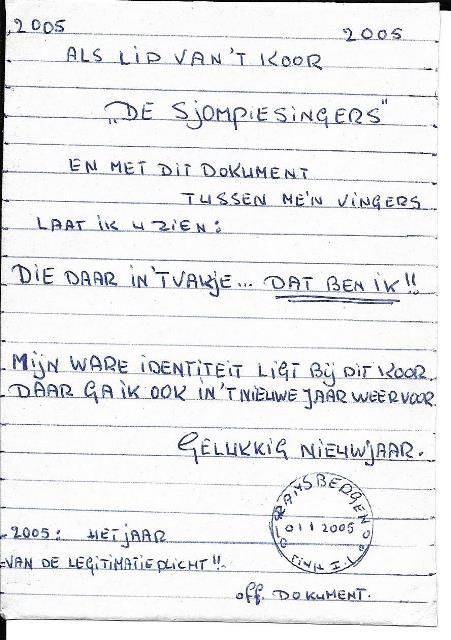 2005 2005
ALS LID VAN 'T KOOR
„DE SJOMPIESINGERS"
EN MET DIT DOKUMENT
TUSSEN ME'N VINGERS
LAAT IK U ZIEN:
DIE DAAR IN 'T VAKJE... DAT BEN IK!!
MIJN WARE IDENTITEIT LIGT BIJ DIT KOOR
DAAR GA IK OOK IN 'T NIEUWE JAAR WEER VOOR
GELUKKIG NIEUWJAAR.
2005: HET JAAR
VAN DE LEGITIMATIEPLICHT!!
0111 2005
off. DOKUMENT.